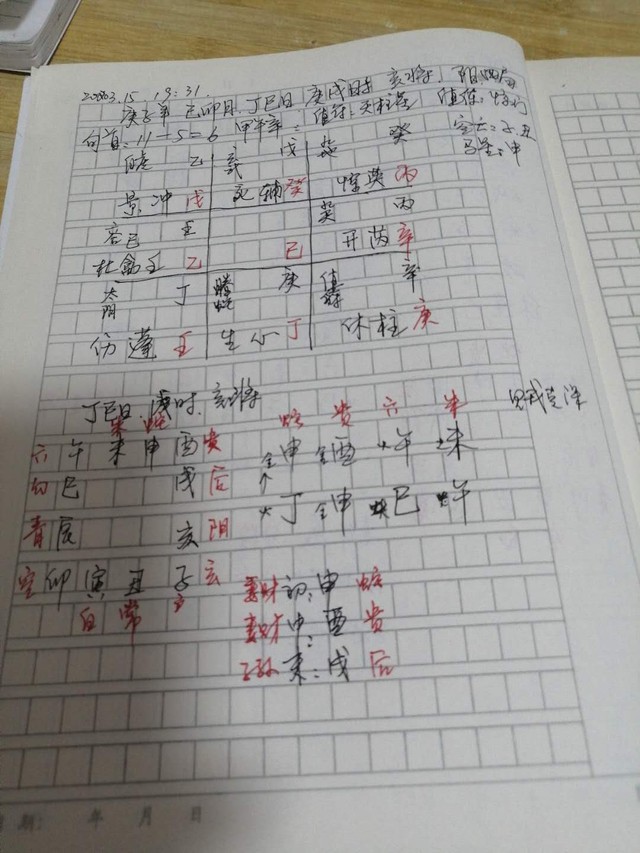 庚子年 己卯月 丁巳日 庚戌时 亥将 阳四局
旬首:11-5=6 甲午辛 值符:天柱 值使:惊门
空亡:子、丑
马星:申
乙 戊 癸
景 冲 戊 死 辅 癸 惊 英 丙
壬 丙
杜 壬 乙 己 开 芮 辛
太阴 丁 螣蛇 庚 值符 辛
伤 蓬 壬 生 心 丁 休 柱 庚
丁巳日 戌时 亥将
蛇 贵 六 朱
朱 蛇
六 午 未 申 酉 贵 金申 金酉 火午 土未
勾 巳 戌 后
青 辰 亥 阴 火丁 金申 火巳 火午
空 卯 寅 丑 子 玄
白 常
妻财 初:申 蛇
妻财 中:酉 贵
子孙 末:戌 后
期: 年 月 日